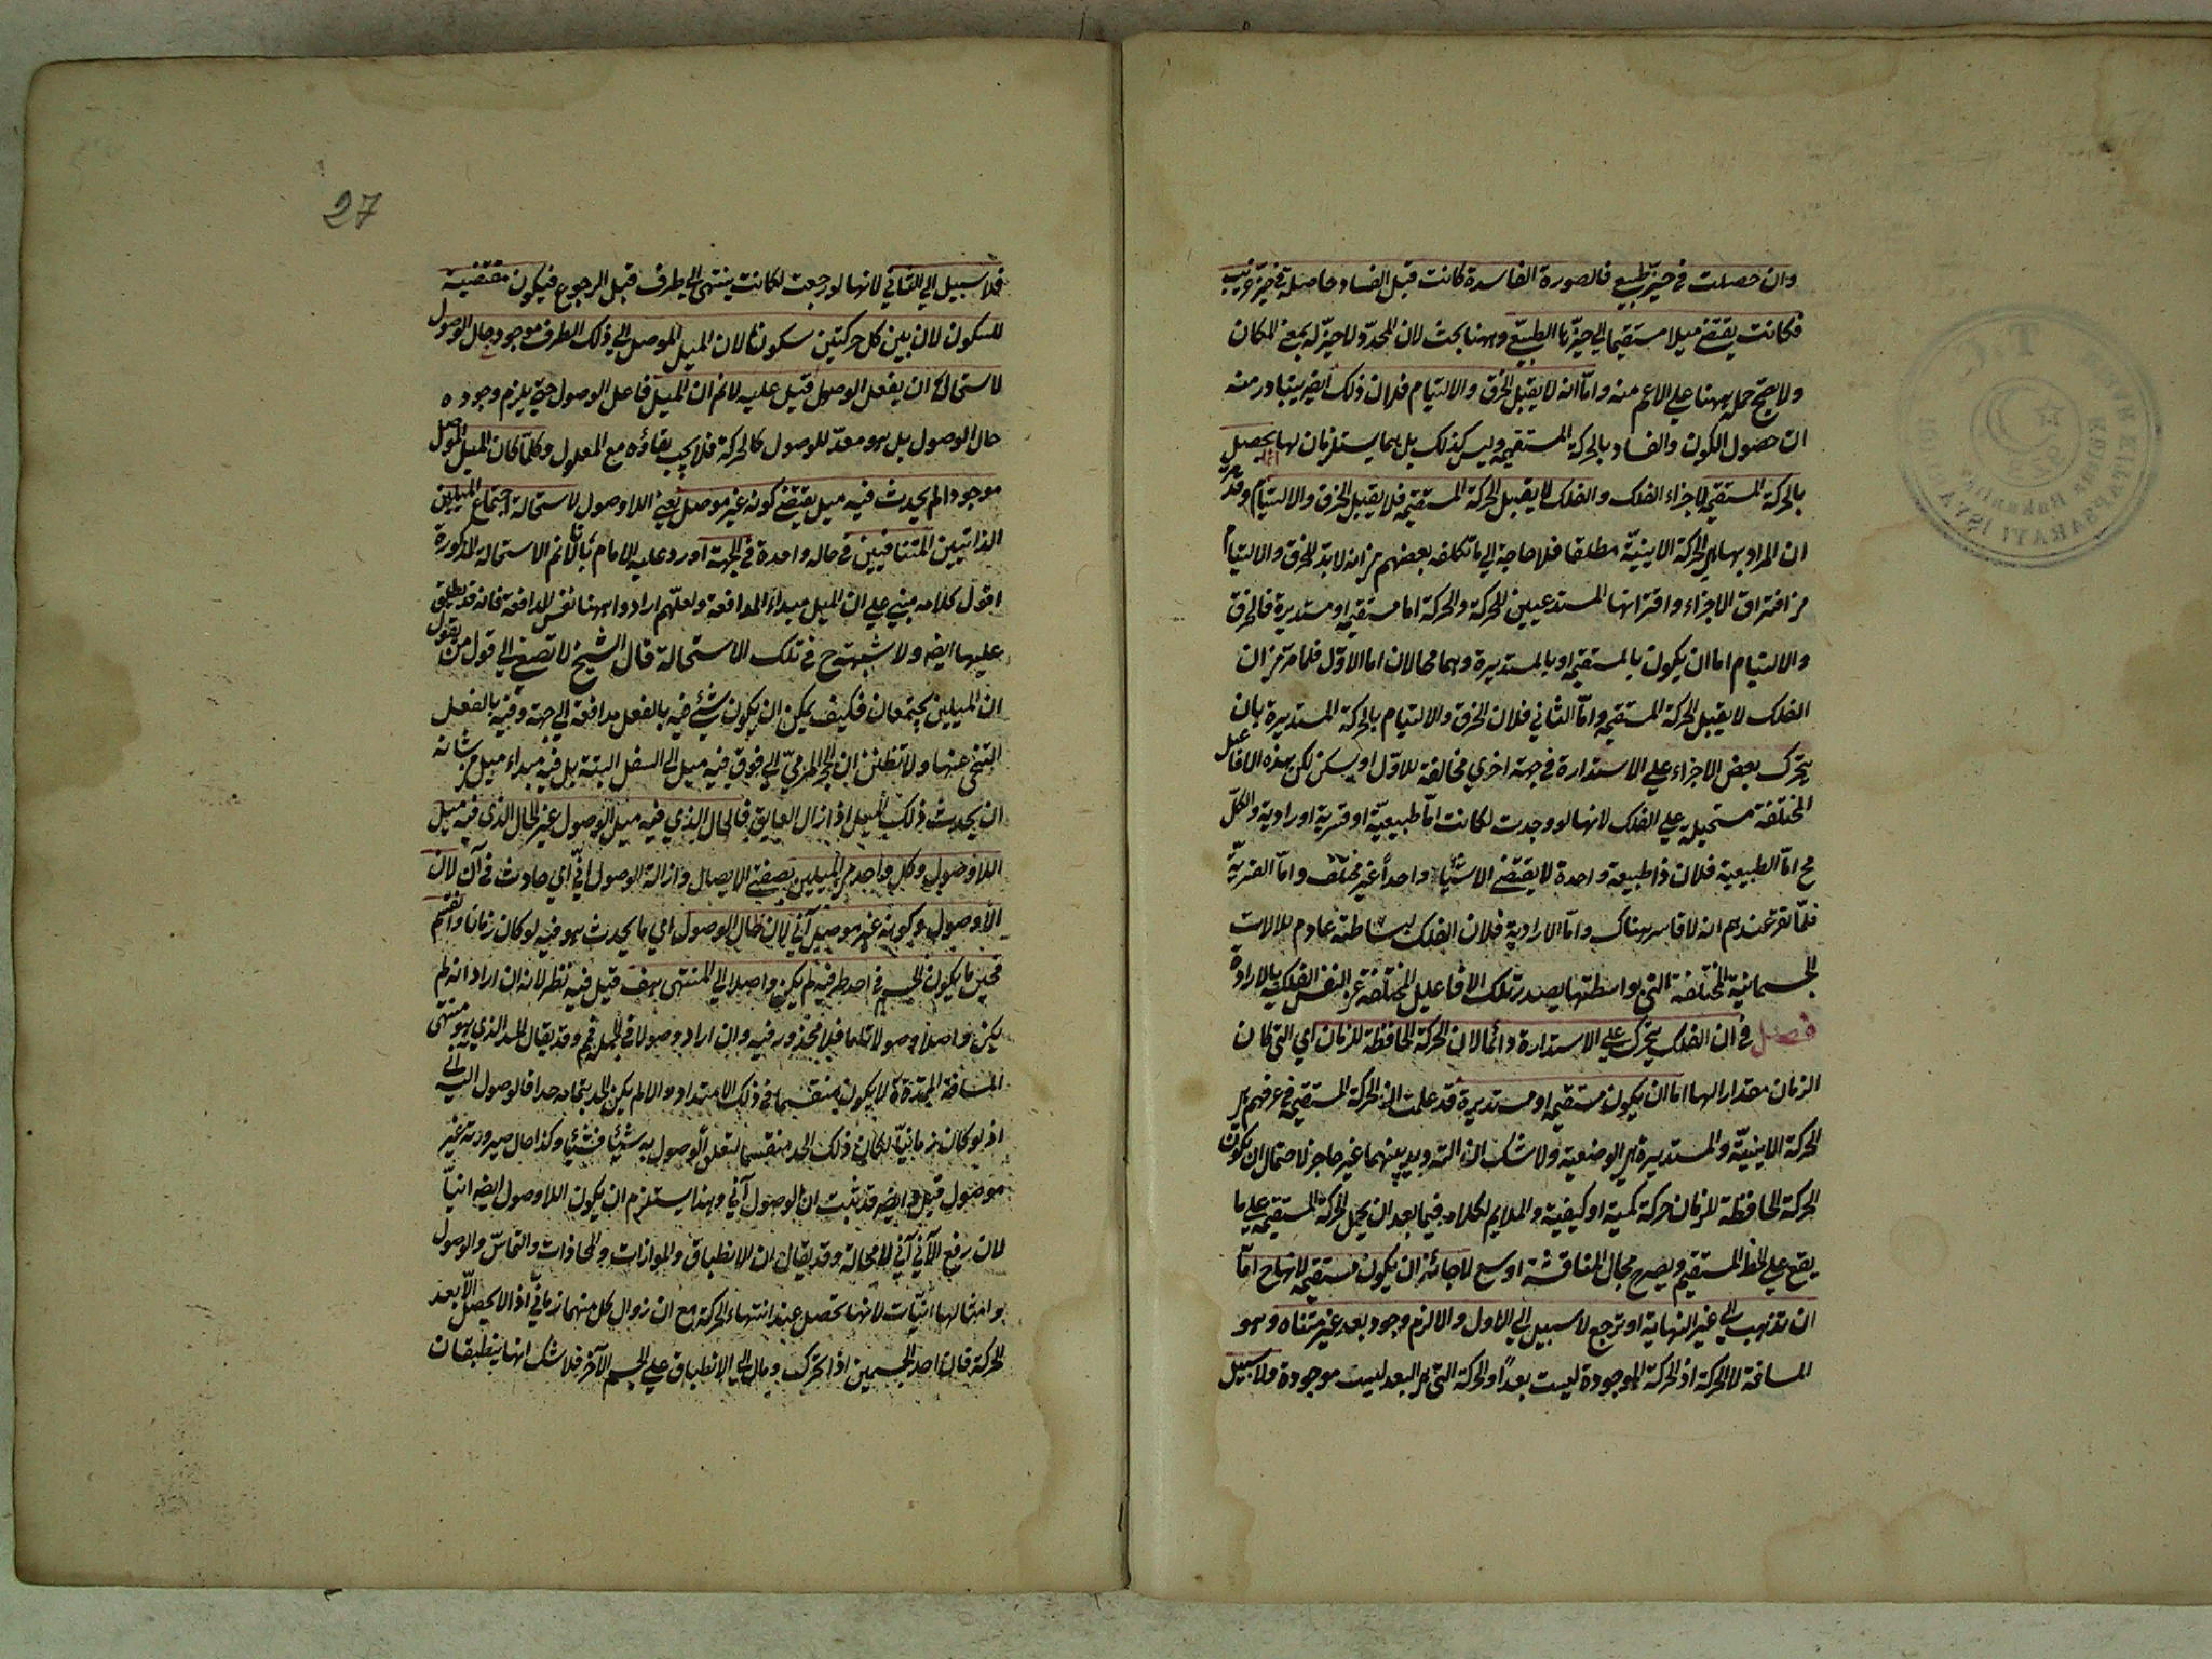 وان حصلت في حيز طبيعي فالصورة الفاسدة كانت قبل الفساد حاصلة في حيز غريب
فكانت يقتضي ميلا مستقيما الي حيزها الطبيعي وههنا بحث لان المحدد لا حيز له بمعني المكان
ولا يصح حمله ههنا علي الاعم منه واما انه لا يقبل الخرق والالتيام فلان ذلك ايضا يتبادر منه
ان حصول الكون والفساد بالحركة المستقيمة وليس كذلك بل هما يستلزمان لها يحصل
بالحركة المستقيمة لاجزاء الفلك والفلك لا يقبل الحركة المستقيمة فلا يقبل الخرق والالتيام وقد مر
ان المراد بها هي الحركة الاينية مطلقا فلا حاجة الي ما تكلفه بعضهم من انه لا بد للخرق والالتيام
من افتراق الاجزاء واقترانها المستدعيين للحركة والحركة اما مستقيمة او مستديرة فالخرق
والالتيام اما ان يكون بالمستقيمة او بالمستديرة وهما محالان اما الاول فلما مر من ان
الفلك لا يقبل الحركة المستقيمة واما الثاني فلان الخرق والالتيام بالحركة المستديرة بان
يتحرك بعض الاجزاء علي الاستدارة في جهة اخري مخالفة للاول او يسكن لكن هذه الافاعيل
المختلفة مستحيلة علي الفلك لانها لو وجدت لكانت اما طبيعية او قسرية او ارادية والكل
مح اما الطبيعية فلان ذا طبيعة واحدة لا يقتضي الا شيئا واحدا غير مختلف واما القسرية
فلما تقرر عندهم ان لا قاسر هناك واما الارادية فلان الفلك لبساطته عادم للالات
الجسمانية المختلفة التي بواسطتها يصدر تلك الافاعيل المختلفة عن النفس الفلكية بالارادة
فصل في ان الفلك يتحرك علي الاستدارة دائما لان الحركة الحافظة للزمان اي التي كان
الزمان مقدارا لها اما ان يكون مستقيمة او مستديرة قد علمت ان الحركة المستقيمة في عرفهم هي
الحركة الاينية والمستديرة هي الوضعية ولا شك ان الترديد بينهما غير حاجز لاحتمال ان يكون
الحركة الحافظة للزمان حركة كمية او كيفية والملايم لكلامه فيما بعد ان يحمل الحركة المستقيمة علي ما
يقع علي الخط المستقيم ويصير ح مجال المناقشة اوسع لا جائز ان يكون مستقيمة لانها ح اما
ان تذهب الي غير النهاية او ترجع لا سبيل الي الاول والا لزم وجود بعد غير متناه وهو
المسافة لا الحركة اذ الحركة الموجودة ليست بعدا والحركة التي هي البعد ليست موجودة ولا سبيل
27
فلا سبيل الي الثاني لانها لو رجعت لكانت ينتهي الي طرف قبل الرجوع فيكون مقتضية
للسكون لان بين كل حركتين سكونا لان الميل الموصل الي ذلك الطرف موجود حال الوصول
لاستحالة ان يفعل الوصول قيل عليه لانم ان الميل فاعل الوصول حتي يلزم وجوده
حال الوصول بل هو معد للوصول كالحركة فلا يجب بقاؤه مع المعلول وكلما كان الميل الموصل
موجودا لم يحدث فيه ميل يقتضي كونه غير موصل يعني اللاوصول لاستحالة اجتماع الميلين
الذاتيين المتنافيين في حالة واحدة في الجهة اورد عليه الامام بانا لانم الاستحالة المذكورة
اقول كلامه مبني علي ان الميل مبداء المدافعة ولعلهم ارادوا ههنا نفس المدافعة فانه قد يطلق
عليها ايضا ولا شبهة ح في تلك الاستحالة قال الشيخ لا تصغ الي قول من يقول
ان الميلين يجتمعان فكيف يمكن ان يكون شئ فيه بالفعل مدافعة الي جهة وفيه بالفعل
التنحي عنها ولا تظنن ان الحجر المرمي الي فوق فيه ميل الي السفل البتة بل فيه مبداء ميل من شانه
ان يحدث ذلك الميل اذا زال العايق فالحال الذي فيه ميل الوصول غير الحال الذي فيه ميل
اللاوصول وكل واحد من الميلين بصفتي الايصال وازالة الوصول اني اي حادث في آن لان
اللاوصول وكونه غير موصل آني لان حال الوصول اي ما يحدث هو فيه لو كان زمانا وانقسم
فحين ما يكون الجسم في احد طرفيه لم يكن واصلا الي المنتهي هف قيل فيه نظر لانه ان اراد انه لم
يكن واصلا وصولا تاما فلا محذور فيه وان اراد وصولا في الجملة فمم وقد يقال الحد الذي هو منتهي
المسافة الممتدة لا يكون منقسما في ذلك الامتداد والا لم يكن الحد بتمامه حدا فالوصول اليه آني
اذ لو كان زمانيا لكان ذلك الحد منقسما لتعلق الوصول به شيئا فشيئا وكذا حال صيرورته غير
موصول قيل ايضا قد ثبت ان الوصول آني وهذا يستلزم ان يكون اللاوصول ايضا انيا
لان رفع الآني آني لا محالة وقد يقال ان الانطباق والموازات والمحاذات والتماس والوصول
وامثالها انيات لانها تحصل عند انتهاء الحركة مع ان زوال كل منها زماني اذ لا يحصل الا بعد
الحركة فان احد الجسمين اذا تحرك ومال الي الانطباق علي الجسم الآخر فلا شك انها ينطبقان